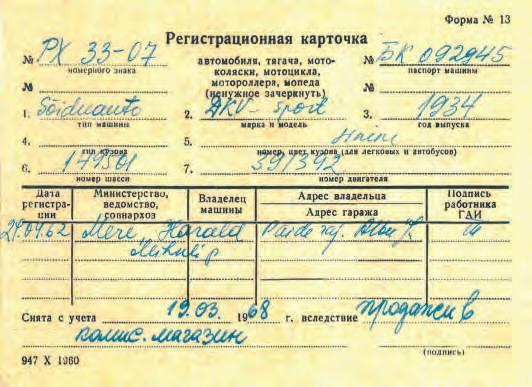 Форма № 13
Регистрационная карточка
№ РХ 33-07 автомобиля, тягача, мото- № БК 092945
номерного знака коляски, мотоцикла, паспорт машины
№ мотороллера, мопеда №
(ненужное зачеркнуть)
1. Sõiduauto 2. DKV-Sport 3. 1934
тип машины марка и модель год выпуска
4. 5.
тип кузова номер, цвет кузова (для легковых и автобусов)
6. 7. 391392
номер шасси номер двигателя
Дата регистра- ции Министерство, ведомство, совнархоз Владелец машины Адрес владельца Подпись работника ГАИ
Адрес гаража
62 Mere, Harald Paide raj.
Mihkli p
Снята с учета 19.03. 1968 г. вследствие продажи в
комис. магазин
(подпись)
947 X 1960